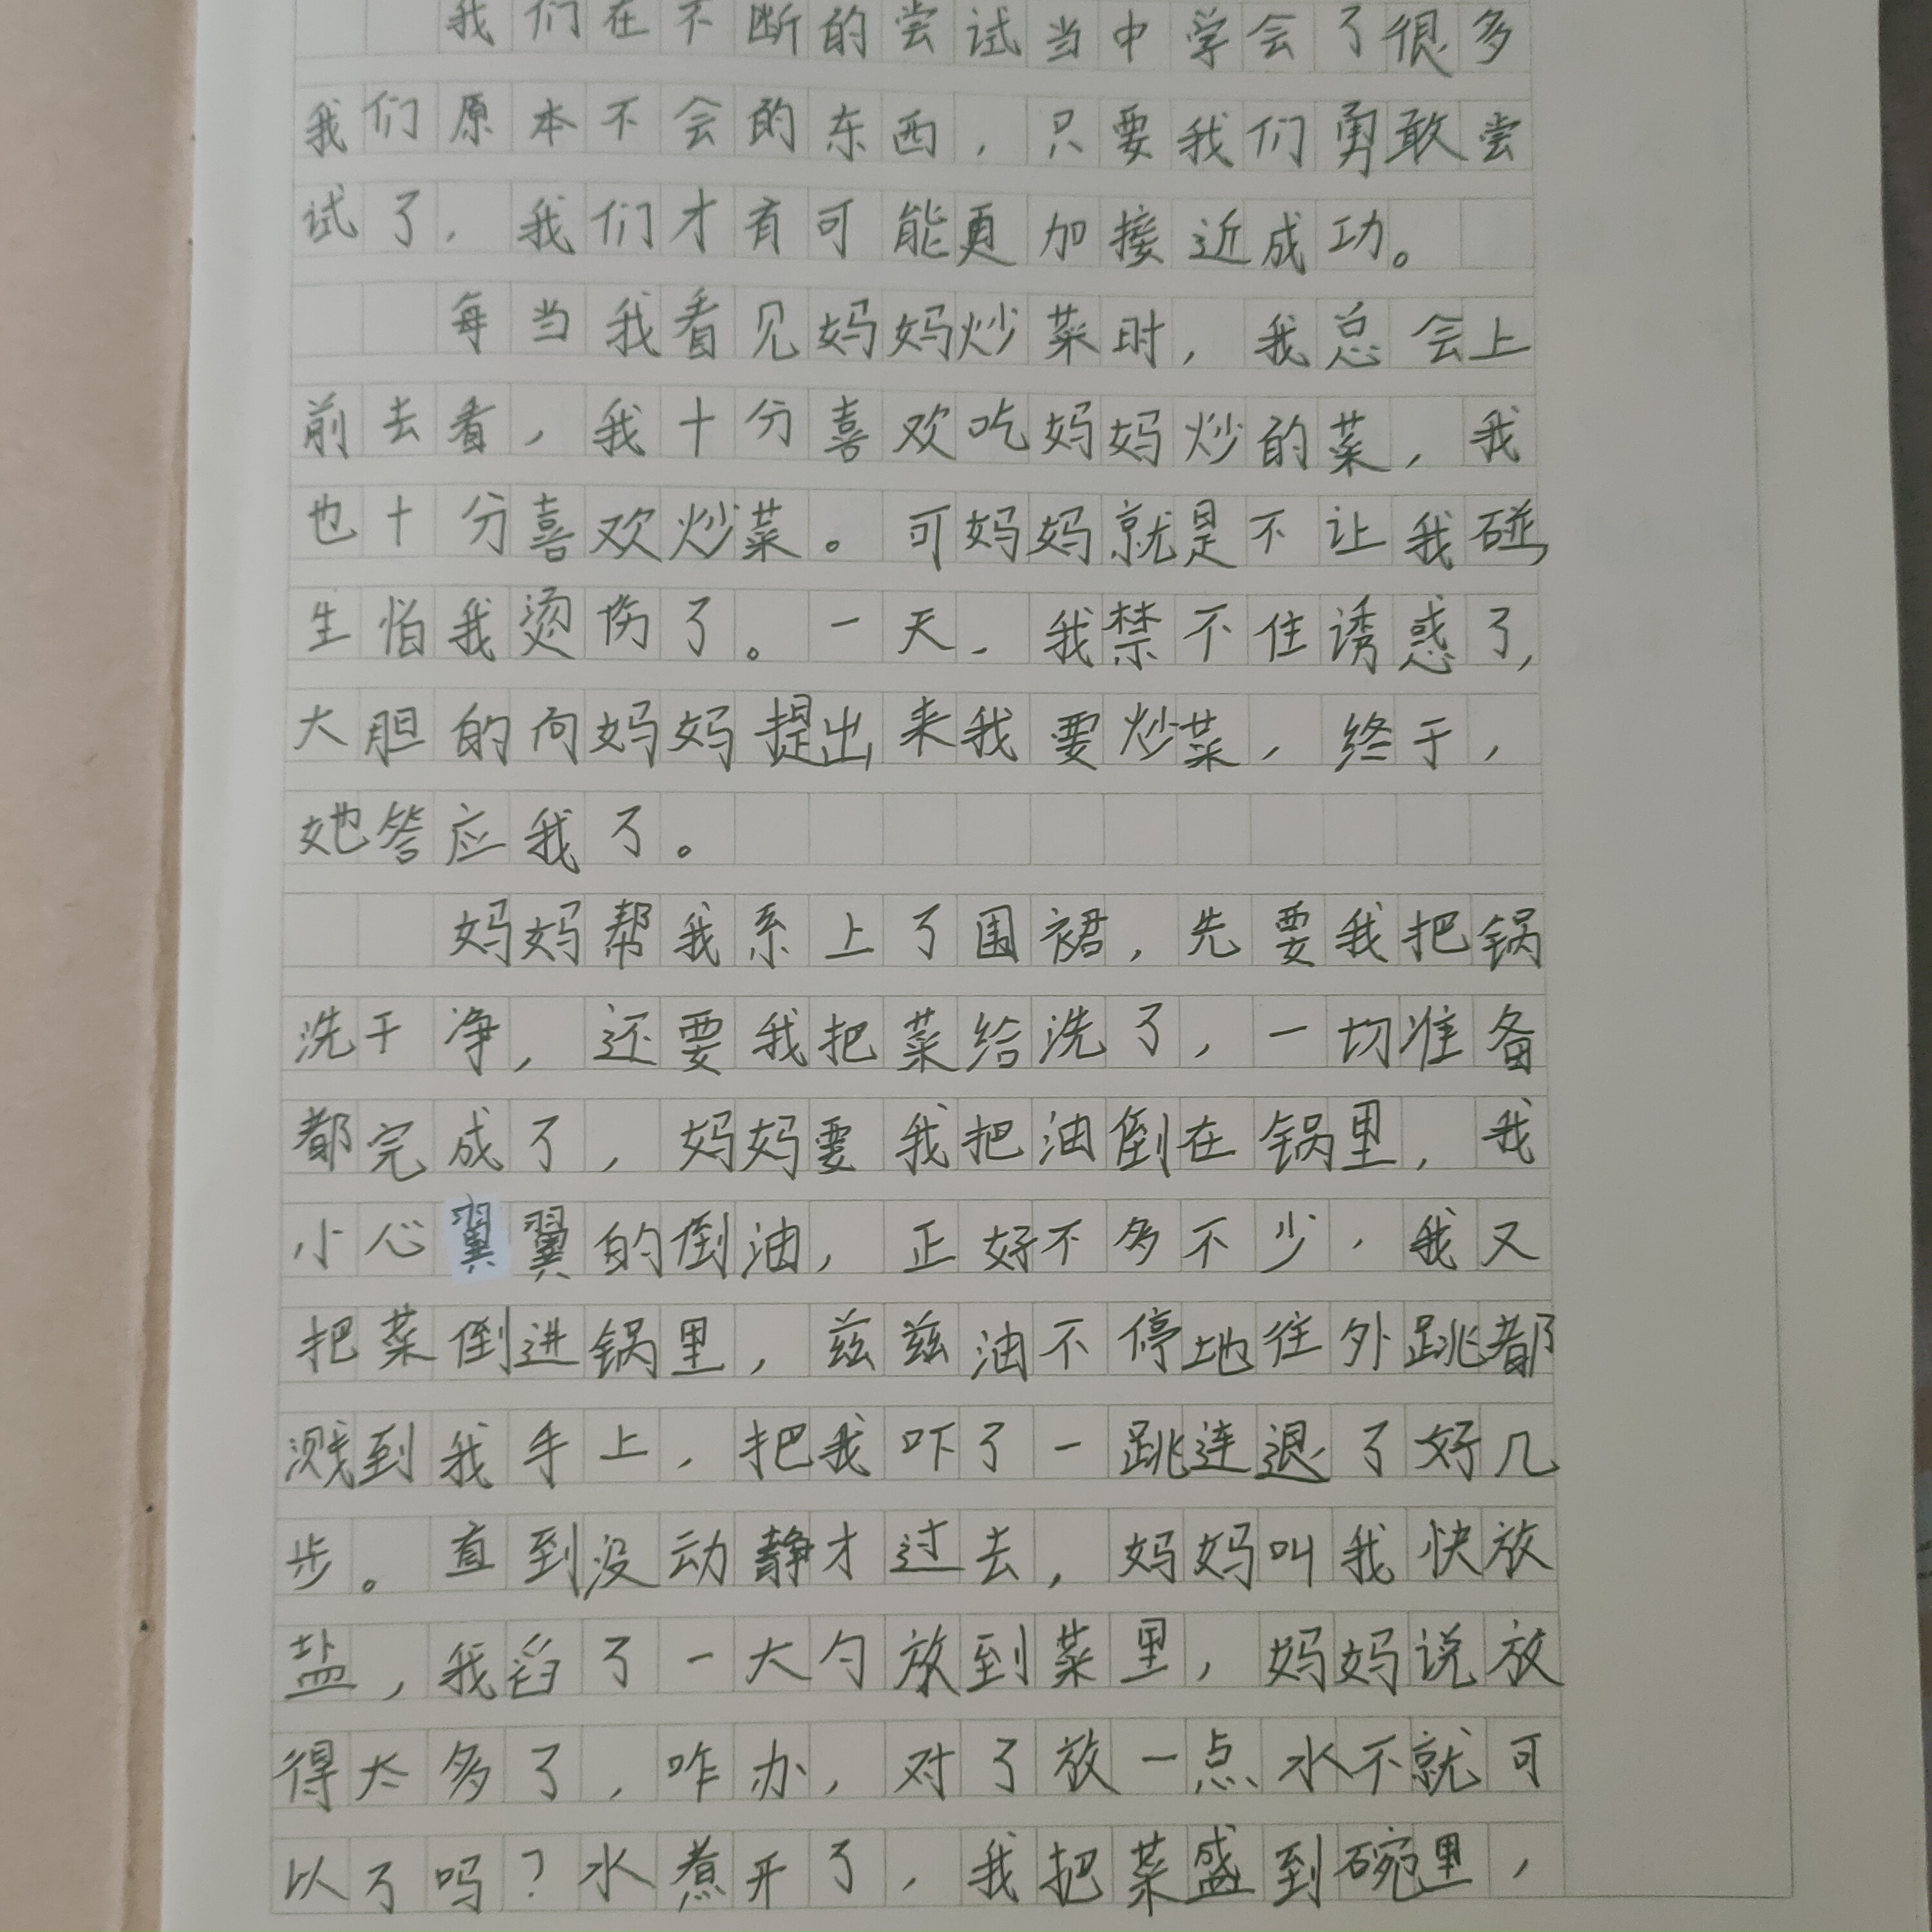 我们在不断的尝试当中学会了很多
我们原本不会的东西，只要我们勇敢尝
试了，我们才有可能更加接近成功。
每当我看见妈妈炒菜时，我总会上
前去看，我十分喜欢吃妈妈炒的菜，我
也十分喜欢炒菜。可妈妈就是不让我碰，
生怕我烫伤了。一天，我禁不住诱惑了，
大胆的向妈妈提出来我要炒菜，终于，
她答应我了。
妈妈帮我系上了围裙，先要我把锅
洗干净，还要我把菜给洗了，一切准备
都完成了，妈妈要我把油倒在锅里，我
小心翼翼的倒油，正好不多不少，我又
把菜倒进锅里，兹兹油不停地往外跳都
溅到我手上，把我吓了一跳连退了好几
步。直到没动静才过去，妈妈叫我快放
盐，我舀了一大勺放到菜里，妈妈说放
得太多了，咋办，对了放一点水不就可
以了吗？水煮开了，我把菜盛到碗里，